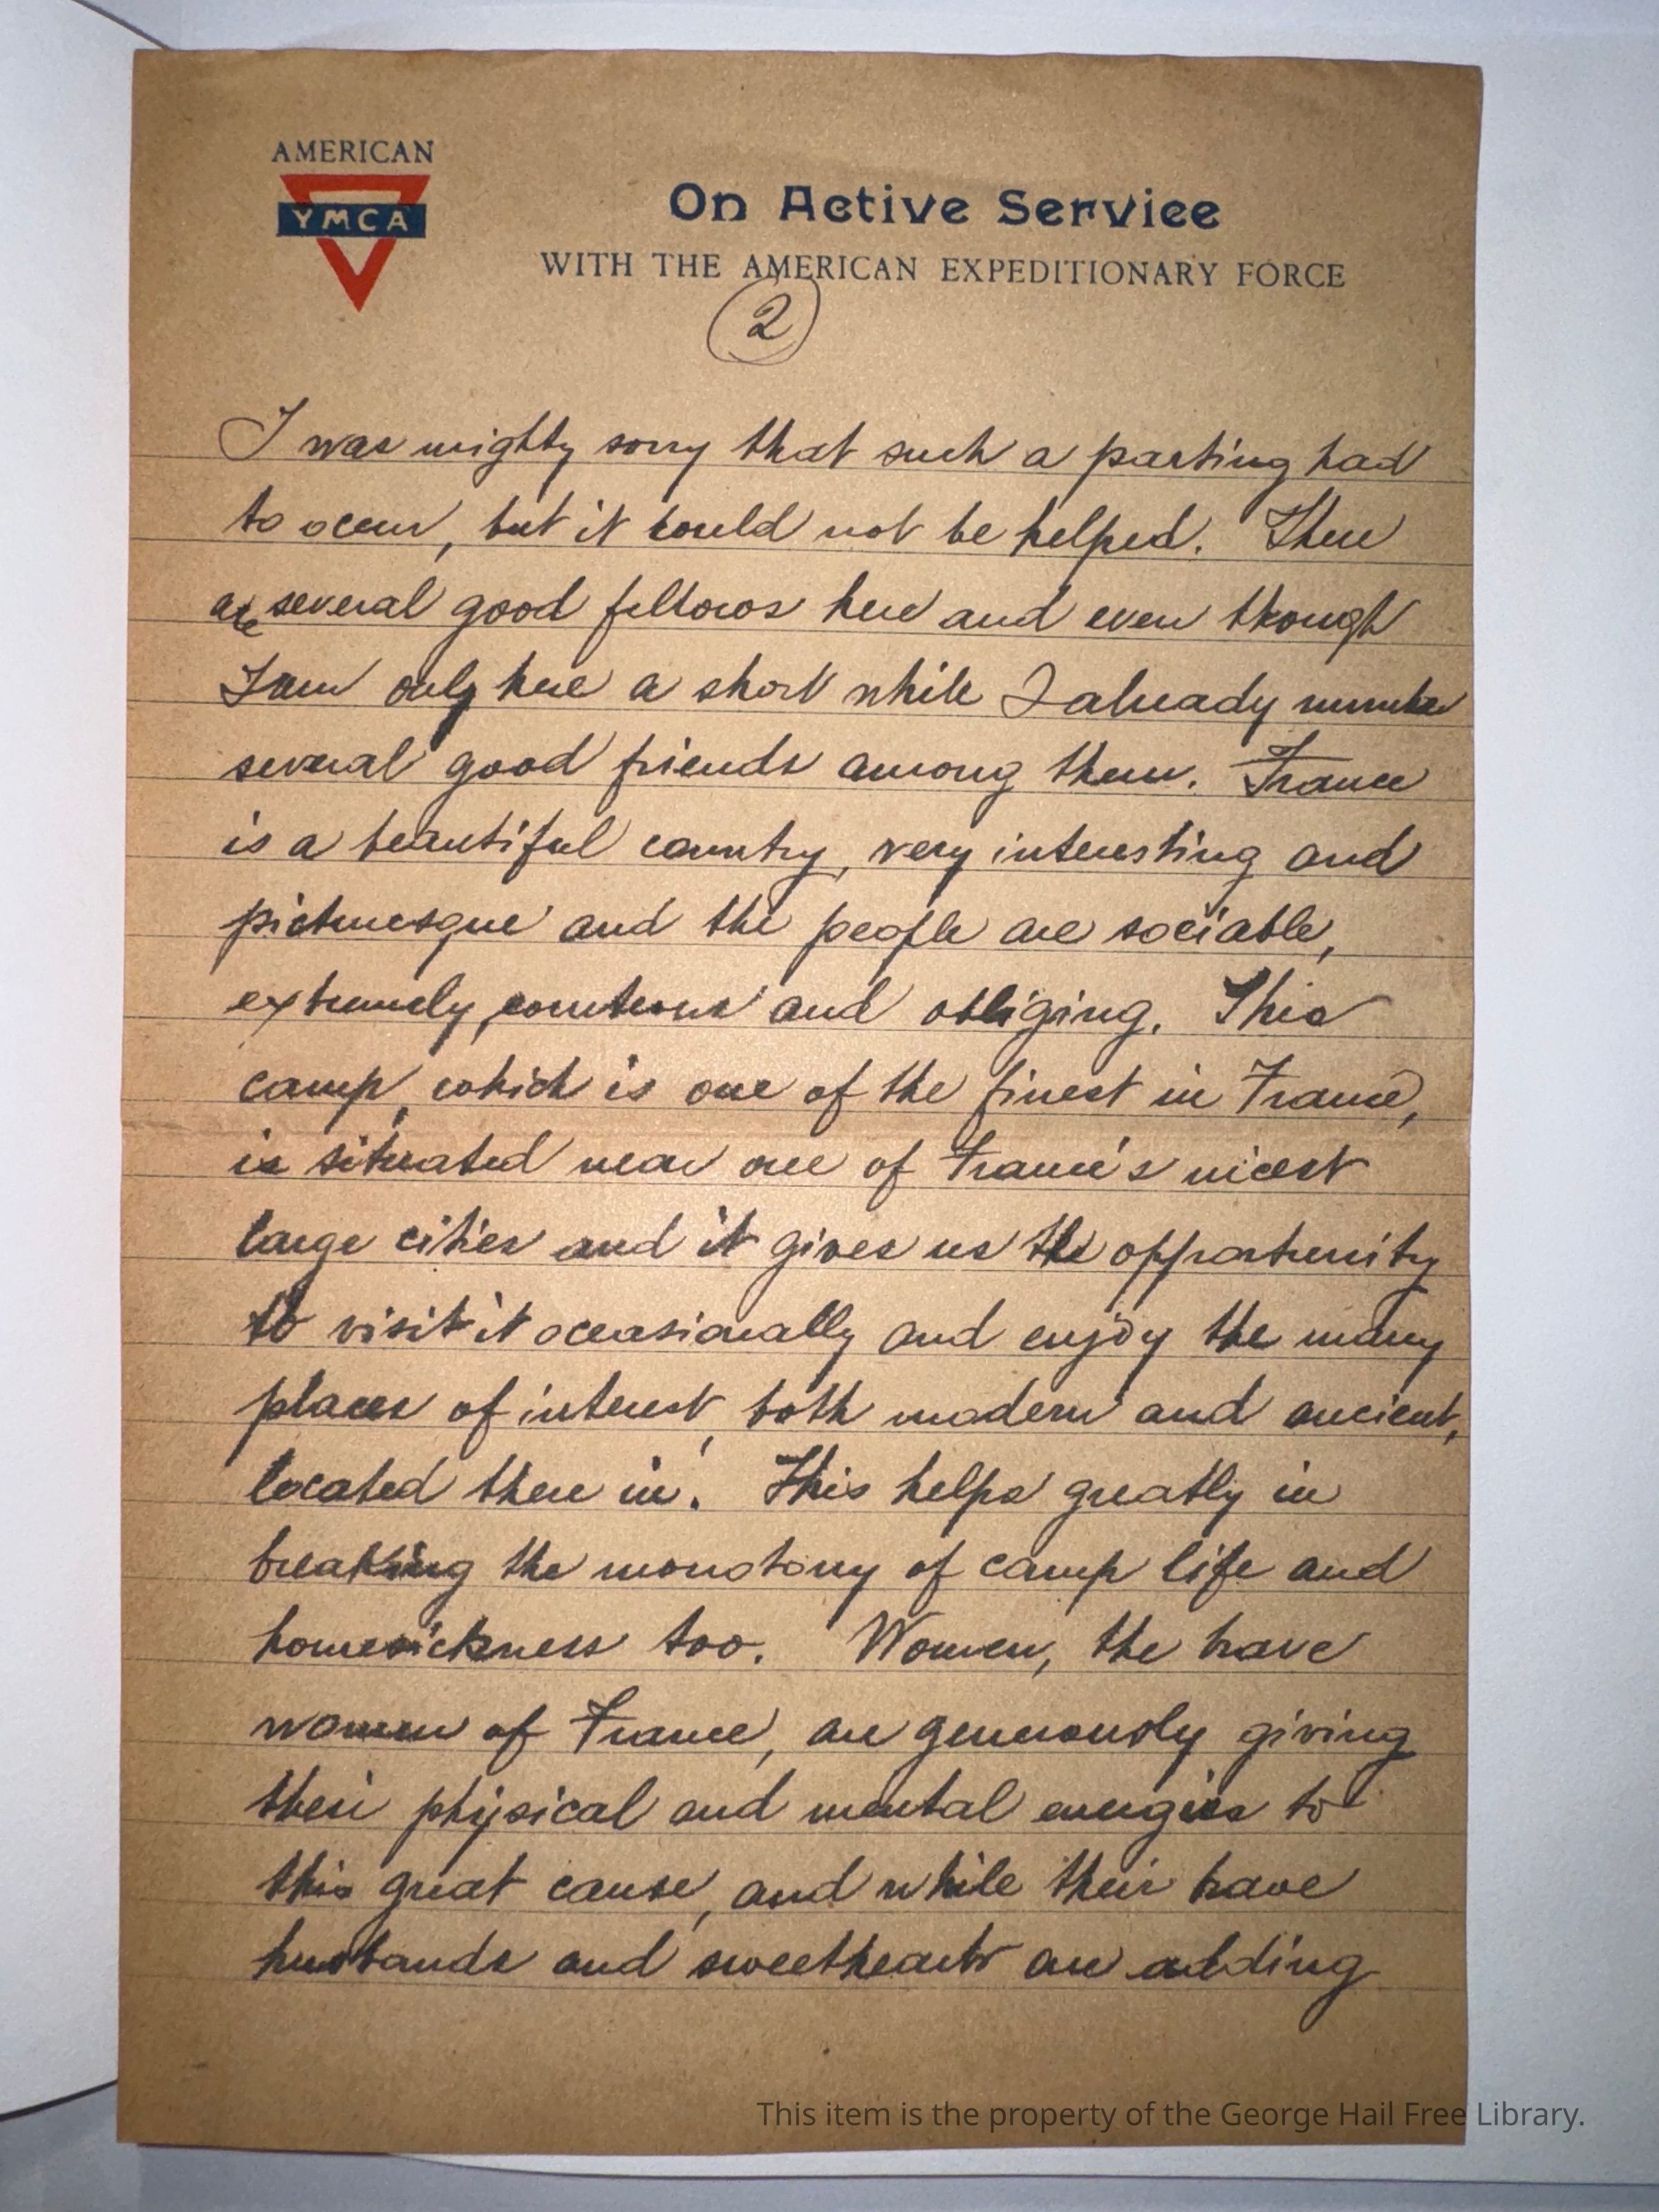 AMERICAN
YMCA
On Active Service
WITH THE AMERICAN EXPEDITIONARY FORCE
2
I was mighty sorry that such a parting had
to occur, but it could not be helped. There
are several good fellows here and even though
I am only here a short while I already number
several good friends among them. France
is a beautiful country, very interesting and
picturesque and the people are sociable,
extremely courteous and obliging. This
camp, which is one of the finest in France,
is situated near one of France's nicest
large cities and it gives us the opportunity
to visit it occasionally and enjoy the many
places of interest, both modern and ancient,
located there in. This helps greatly in
breaking the monotony of camp life and
homesickness too. Women, the brave
women of France, are generously giving
their physical and mental energies to
this great cause, and while their brave
husbands and sweethearts are adding
This item is the property of the George Hail Free Library.